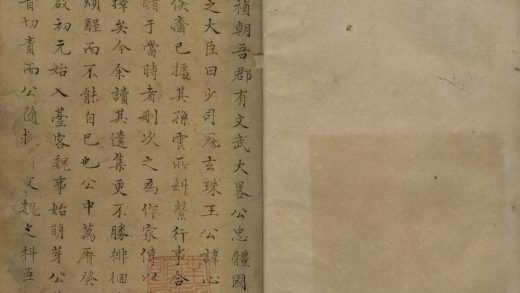 禎朝吾郡有文武大畧公忠體國
之大臣曰少司冠玄珠王公諱心
俟齋已據其孫雲所糾繫行事合
睹于當時者刪次之為作家傳以
擇矣今余讀其遺集更不勝徘徊
煩酲而不能自已也公中萬厯癸
啟初元始入臺客魏事始萌芽公
旨切責而公隨抗文魏之科臣